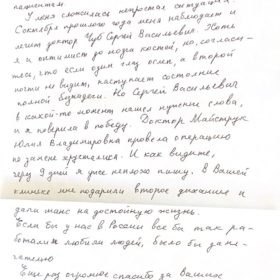 пациентам.
У меня сложилась непростая ситуация.
С октября прошлого года меня наблюдает и
лечит доктор Чуб Сергей Васильевич. Хоть
я и оптимист до мозга костей, но, согласи-
тесь, что если один глаз ослеп, а второй
почти не видит, наступает состояние
полной безнадеги. Но Сергей Васильевич
в какой-то момент нашел нужные слова,
и я поверила в победу. Доктор Майструк
Юлия Владимировна провела операцию
по замене хрусталика. И как видите,
через 9 дней я уже неплохо пишу. В Вашей
клинике мне подарили второе дыхание и
дали шанс на достойную жизнь.
Если бы у нас в России все бы так ра-
ботали и любили людей, было бы заме-
чательно
Еще раз огромное спасибо за Вашу